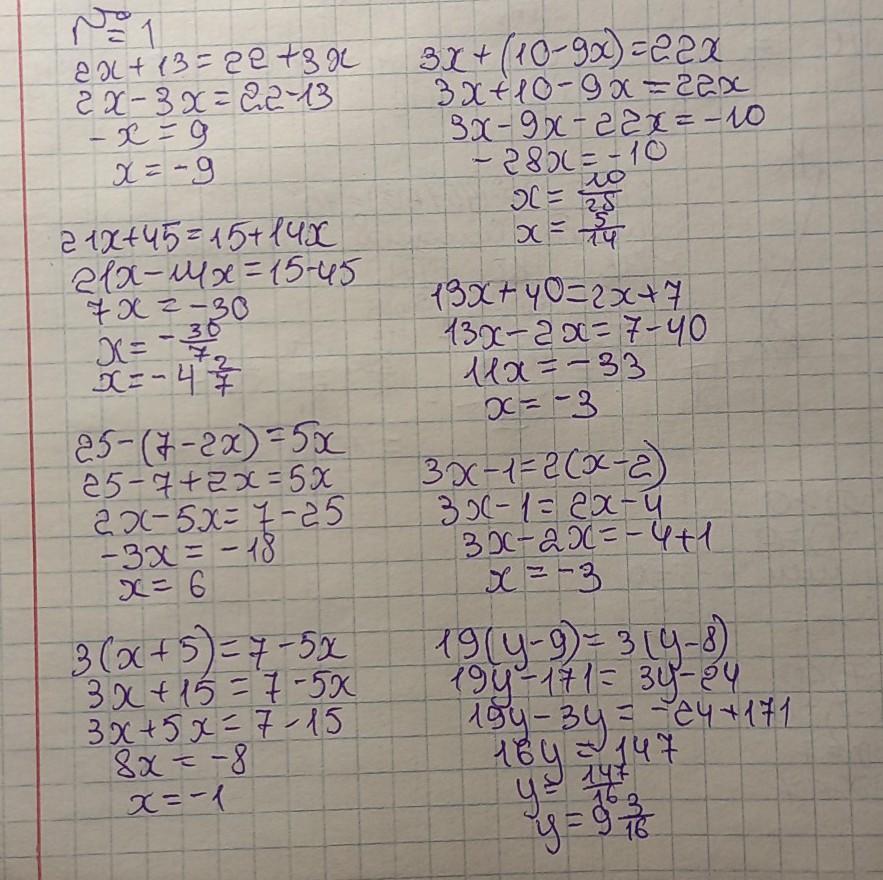 № 1
2x+13=22+3x
2x-3x=22-13
-x=9
x=-9
21x+45=15+14x
21x-14x=15-45
7x=-30
x=-30/7
x=-4 2/7
25-(7-2x)=5x
25-7+2x=5x
2x-5x=7-25
-3x=-18
x=6
3(x+5)=7-5x
3x+15=7-5x
3x+5x=7-15
8x=-8
x=-1
3x+(10-9x)=22x
3x+10-9x=22x
3x-9x-22x=-10
-28x=-10
x=10/28
x=5/14
13x+40=2x+7
13x-2x=7-40
11x=-33
x=-3
3x-1=2(x-2)
3x-1=2x-4
3x-2x=-4+1
x=-3
19(y-9)=3(y-8)
19y-171=3y-24
19y-3y=-24+171
16y=147
y=147/16
y=9 3/16